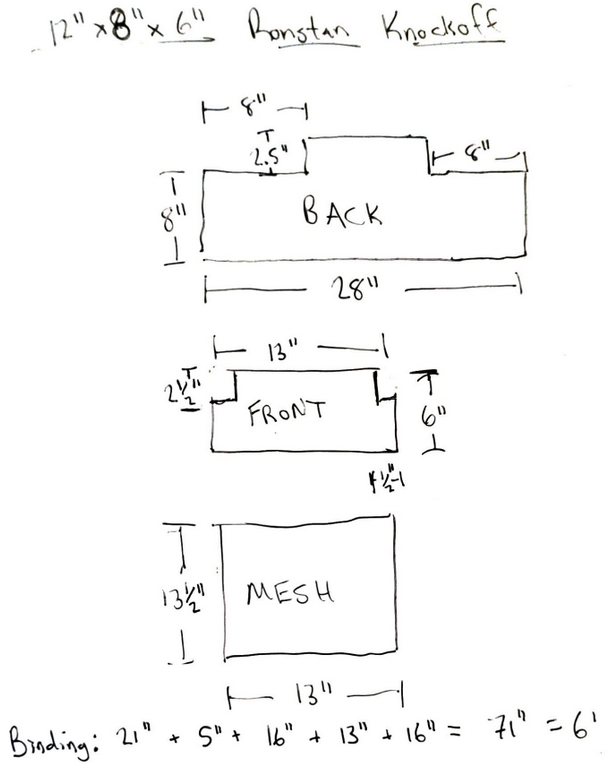 12" x 8" x 6" Ronstan Knockoff
8"
2.5"
8"
8"
BACK
28"
13"
2 1/2"
FRONT
6"
1/2"
13 1/2"
MESH
13"
Binding: 21" + 5" + 16" + 13" + 16" = 71" = 6'